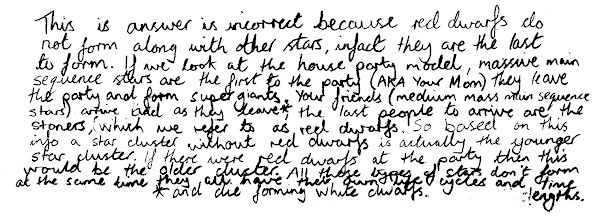 This is answer is incorrect because red dwarfs do
not form along with other stars, infact they are the last
to form. If we look at the house party model, massive main
sequence stars are the first to the party (AKA Your Mom) They leave
the party and form supergiants. Your friends (medium mass main sequence
stars) arrive and as they leave* the last people to arrive are the
stoners, which we refer to as red dwarfs. So based on this
info a star cluster without red dwarfs is actually the younger
star cluster. If there were red dwarfs at the party then this
would be the older cluster. All these types of stars don't form
at the same time they all have their own life cycles and time
lengths.
* and die forming white dwarfs.